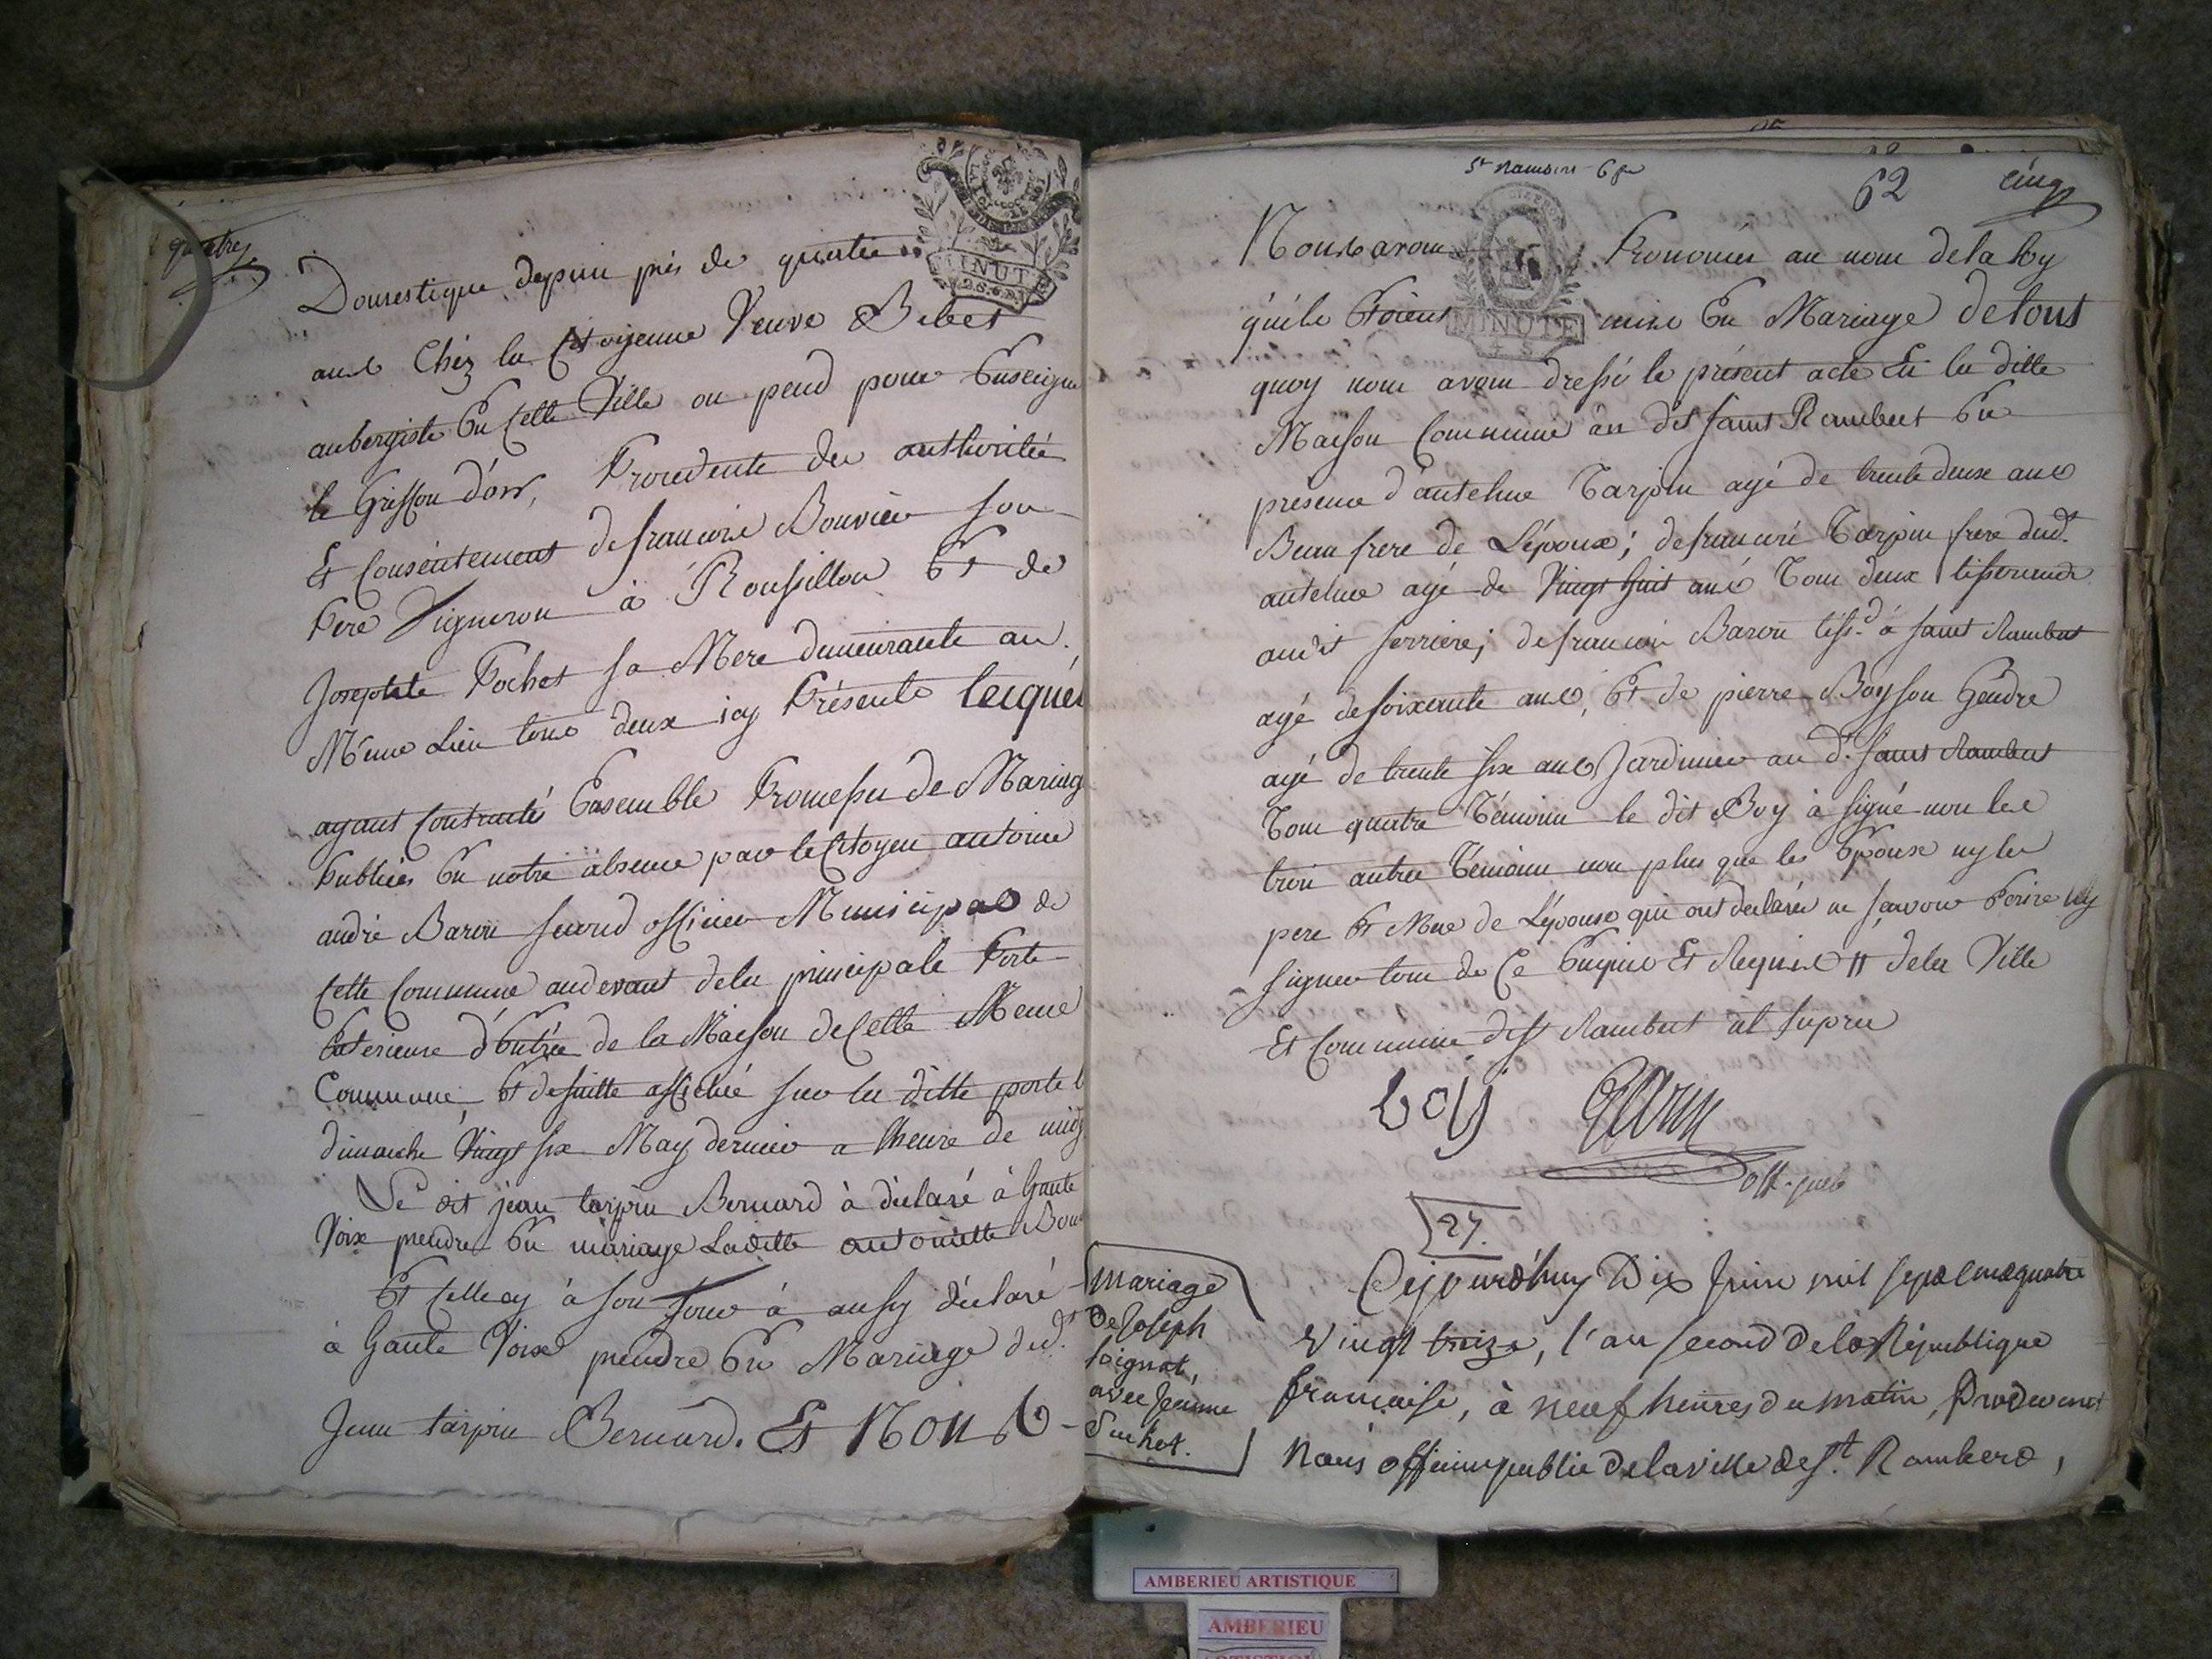 quatre
Domestique depuis près de quatre
ans Chéz la Citoyenne Veuve Bibet
aubergiste En Cette Ville ou pend pour Enseigne
le Griffon d'or, Procédente des authorités
Et Consentement de francoise Bouvier son
Pere Vigneron à Roussillon Et de
Josephte Pochet sa Mere demeurante au
Même Lieu tous deux icy Présents lesquels
ayant Contracté Ensemble Promesses de Mariage
Publiées En notre absence par le Citoyen antoine
andré Baron second officier Municipal de
Cette Commune audevant de la principale Porte
Exterieure d'Entrée de la Maison de Cette Meme
Commune, Et de suitte affichée sur la ditte porte l
dimanche Vingt six May dernier a lheure de midy
Le dit jean tarpin Bernard à déclaré à haute
Voix prendre En mariage Laditte antoinette Bou
Et Celle cy à son tour à aussy déclaré
à haute Voix prendre En Mariage dud.t
Jean tarpin Bernard. Et Nous
St Rambert 62 cinq
MINUTE
Nous avons Prononcés au nom de la loy
qu'ils Etoient unis En Mariage de tout
quoy nous avons dressé le présent acte En la ditte
Maison Commune au dit saint Rambert En
présence d'antelme Tarpin agé de trente deux ans
Beau frere de L'époux; de francois Tarpin frere dud.t
antelme agé de Vingt huit ans Tous deux tisserands
audit serriere; de francois Baron tiss.d à saint Rambert
agé de soixante ans, Et de pierre Boy son Gendre
agé de trente six ans Jardinier au d.t saint Rambert
Tous quatre Témoins le dit Boy à signé non les
trois autres Témoins non plus que les Epoux ny les
pere Et Mere de L'épouse qui ont declarés ne savoir Ecrire ny
signer tous de Ce Enquis Et Requis de la Ville
Et Commune de St Rambert ut supra
boy
off. pub
27.
Mariage
de Joseph
soignat,
avec Jeanne
Suchet.
Cejourd'huy Dix Juin mil sept cent quatre
vingt treize, l'an second de la République
francaise, à neuf heures du matin, Pardevant
Nous officier public de la ville de St. Rambert,
AMBERIEU ARTISTIQUE
AMBERIEU
ARTISTIQUE